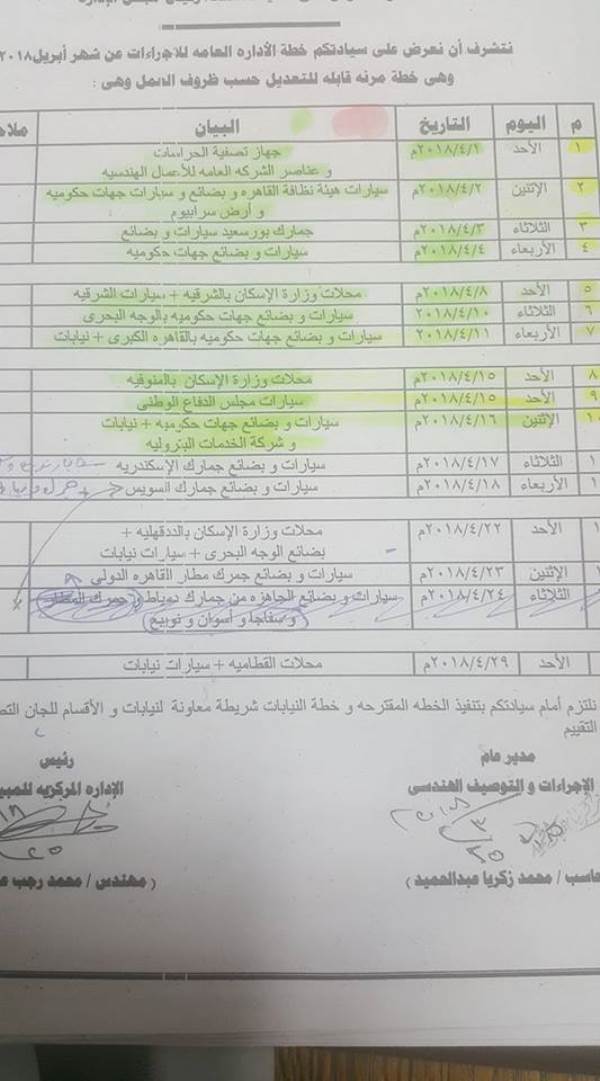 نتشرف أن نعرض على سيادتكم خطة الأداره العامه للاجراءات عن شهر أبريل٢٠١٨
وهى خطة مرنه قابله للتعديل حسب ظروف العمل وهى :
م اليوم التاريخ البيان
١ الأحد ٢٠١٨/٤/١م جهاز تصفية الحراسات
و عناصر الشركه العامه للأعمال الهندسيه
٢ الإثنين ٢٠١٨/٤/٢م سيارات هيئة نظافة القاهره و بضائع و سيارات جهات حكوميه
و أرض سرابيوم
٣ الثلاثاء ٢٠١٨/٤/٣م جمارك بورسعيد سيارات و بضائع
٤ الأربعاء ٢٠١٨/٤/٤م سيارات و بضائع جهات حكوميه
٥ الأحد ٢٠١٨/٤/٨م محلات وزارة الإسكان بالشرقيه + سيارات الشرقيه
٦ الثلاثاء ٢٠١٨/٤/١٠ سيارات و بضائع جهات حكوميه بالوجه البحرى
٧ الأربعاء ٢٠١٨/٤/١١ سيارات و بضائع جهات حكوميه بالقاهره الكبرى + نيابات
٨ الأحد ٢٠١٨/٤/١٥م محلات وزارة الإسكان بالمنوفيه
٩ الأحد ٢٠١٨/٤/١٥م سيارات مجلس الدفاع الوطنى
الإثنين ٢٠١٨/٤/١٦م سيارات و بضائع جهات حكوميه + نيابات
و شركة الخدمات البتروليه
الثلاثاء ٢٠١٨/٤/١٧م سيارات و بضائع جمارك الإسكندريه
الأربعاء ٢٠١٨/٤/١٨م سيارات و بضائع جمارك السويس
الأحد ٢٠١٨/٤/٢٢م محلات وزارة الإسكان بالدقهليه +
بضائع الوجه البحرى + سيارات نيابات
الإثنين ٢٠١٨/٤/٢٣م سيارات و بضائع جمرك مطار القاهره الدولى
الثلاثاء ٢٠١٨/٤/٢٤م سيارات و بضائع الجاهزه من جمارك دمياط ( جمرك المطار
و سفاجا و أسوان و نويبع )
الأحد ٢٠١٨/٤/٢٩م محلات القطاميه + سيارات نيابات
نلتزم أمام سيادتكم بتنفيذ الخطه المقترحه و خطة النيابات شريطة معاونة لنيابات و الأقسام للجان
التقييم
مدير عام رئيس
الإجراءات و التوصيف الهندسى الإداره المركزيه
٢٠١٨/٣/٢٥
حاسب / محمد زكريا عبدالحميد ) ( مهندس / محمد رجب